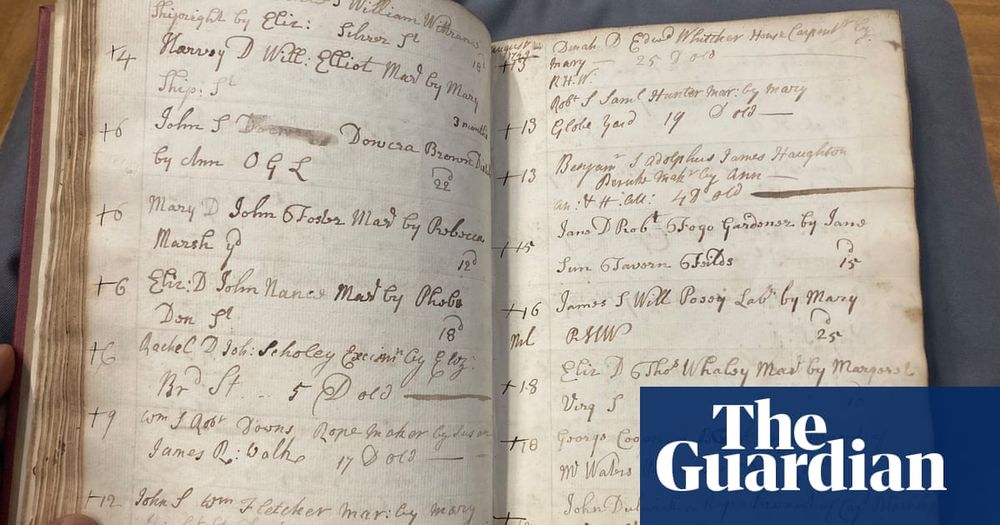 William
Shipwright by Eliz: Silver St
18d
+4 Harvey D Will: Elliot Mard by Mary
Ship: St
3 months
+6 John S Dowcra Brown
by Ann O G L
22d
+6 Mary D John Foster Mard by Rebecca
Marsh yd
12d
+6 Eliz: D John Nance Mard by Phebe
Don St
18d
+6 Rachel D Joh: Scholey by Eliz:
Brd St .. 5 D old
+9 Wm S Robt Downs Rope maker by Susan
James R: Walk 17 D old
+12 John S Wm Fletcher mar: by mary
August
+13 Dinah D Edwd Whitcher House Carpentr by
mary — 25 D old
R.H.W.
Robt S Saml Hunter mar: by mary
+13 Globe Yard 19 D old —
+13 Benjamn S Adolphus James Haughton
by Ann —
4 D old
Jane D Robt Fogo Gardener by Jane
+15 Sun Tavern Feilds
15d
+16 James S Will Posey Labr by Mary
RHW
25d
+18 Eliz D Thos Whaley Mard by Margaret
Virg S
+18 George
Mr Waters
John
The
Guardian